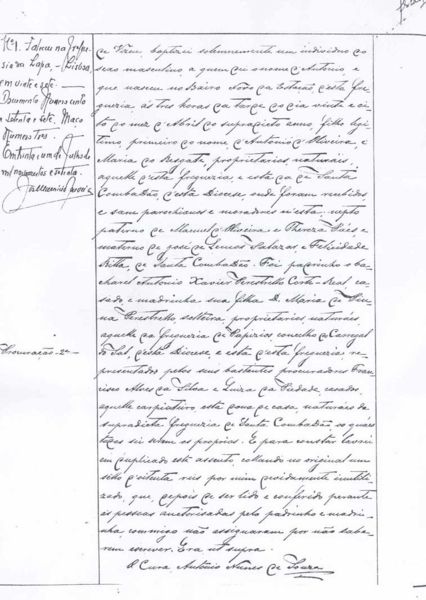 Nº 1. Faleceu na fregue-
sia da Lapa, - Lisboa,
em vinte e sete.
Documento Numero cento
e setenta e sete. Maço
Numero tres.
Em trinta e um de Julho de
mil novecentos e setenta.
Procuração - 2ª -
de Vizeu baptizei solemnemente um individuo do
sexo masculino a quem dei o nome d'Antonio, e
que nasceu no Bairro Novo da Estação, d'esta fre-
guezia, ás tres horas da tarde do dia vinte e oi-
to do mez d'Abril do supradicto anno, filho legi-
timo, primeiro do nome d'Antonio d'Oliveira, e
Maria do Resgate, proprietarios, naturaes,
aquelle d'esta freguezia, e esta da de Santa
Combadão, d'esta Diocese, onde foram recebidos
e sam parochianos e moradores n'esta, nepto
paterno de Manuel d'Oliveira e Thereza Paes, e
materno de José de Lemos Salazar e Felicidade
de Santa Combadão. Foi padrinho o ba-
charel Antonio Xavier Perestrello Corte-Real, ca-
sado, e madrinha sua filha D. Maria de
Perestrello, solteira, proprietarios, naturaes,
aquelle da freguezia de Papizios concelho de Carregal
do Sal, d'esta Diocese, e esta d'esta freguezia, re-
presentados pelos seus bastantes procuradores Fran-
cisco Alves da Silva e Luiza da Piedade, casados,
aquelle carpinteiro, esta dona de casa, naturaes da
supradicta freguezia de Santa Combadão, os quaes
todos sei serem os proprios. E para constar lavrei
em duplicado este assento, collando no original um
sello d'oitenta reis por mim devidamente inutili-
zado, que, depois de ser lido e conferido perante
as pessoas auctorisadas pelo padrinho e madri-
nha, commigo não assignaram por não sabe-
rem escrever. Era ut supra.
O Cura Antonio Nunes de Souza